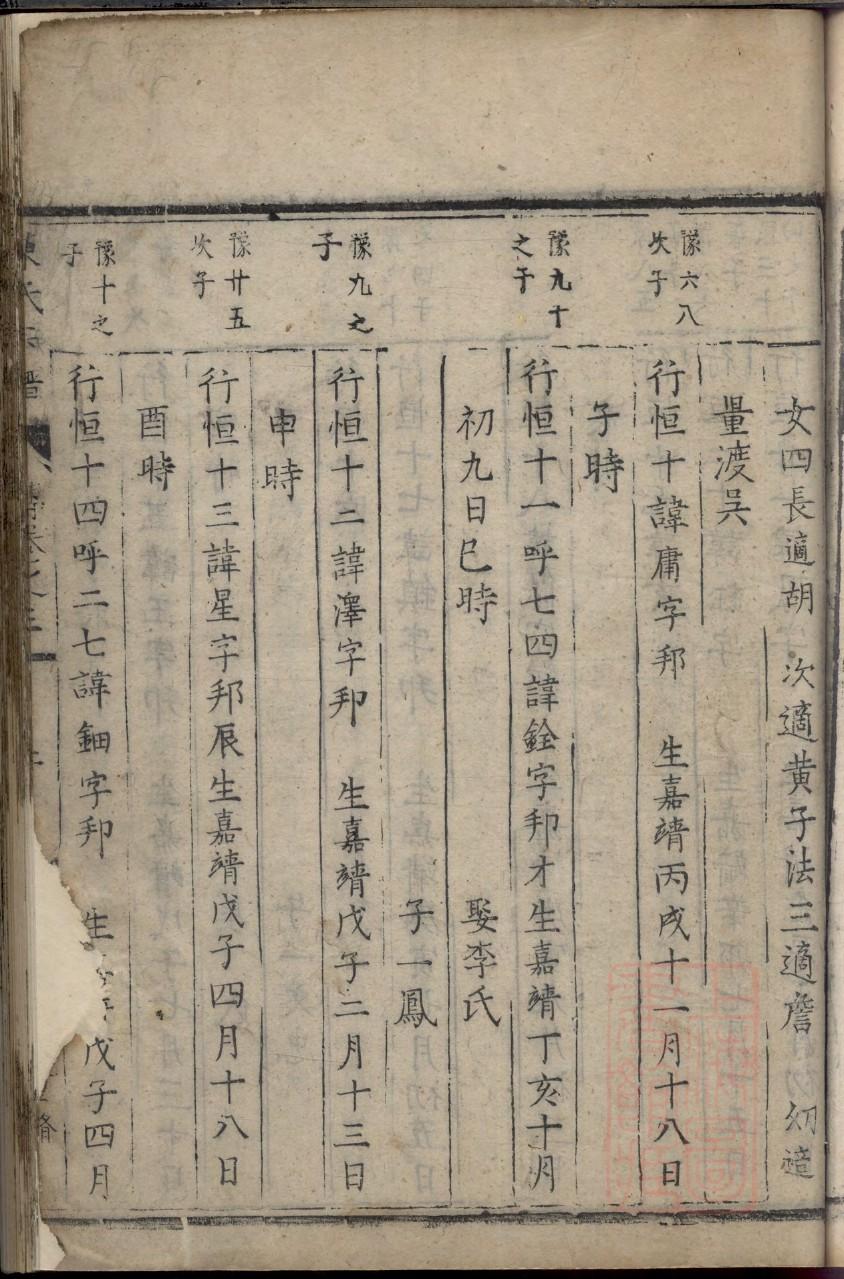 女四長適胡 次適黄子法三適詹 幼適
量渡吳
豫六八
次子
行恒十諱庸字邦 生嘉靖丙戌十一月十八日
子時
豫九十
之子
行恒十一呼七四諱銓字邦才生嘉靖丁亥十月
初九日巳時 娶李氏
子一鳳
豫九之
子
行恒十二諱澤字邦 生嘉靖戊子二月十三日
申時
豫廿五
次子
行恒十三諱星字邦辰生嘉靖戊子四月十八日
酉時
豫十之
子
行恒十四呼二七諱鈿字邦 生 戊子四月
氏